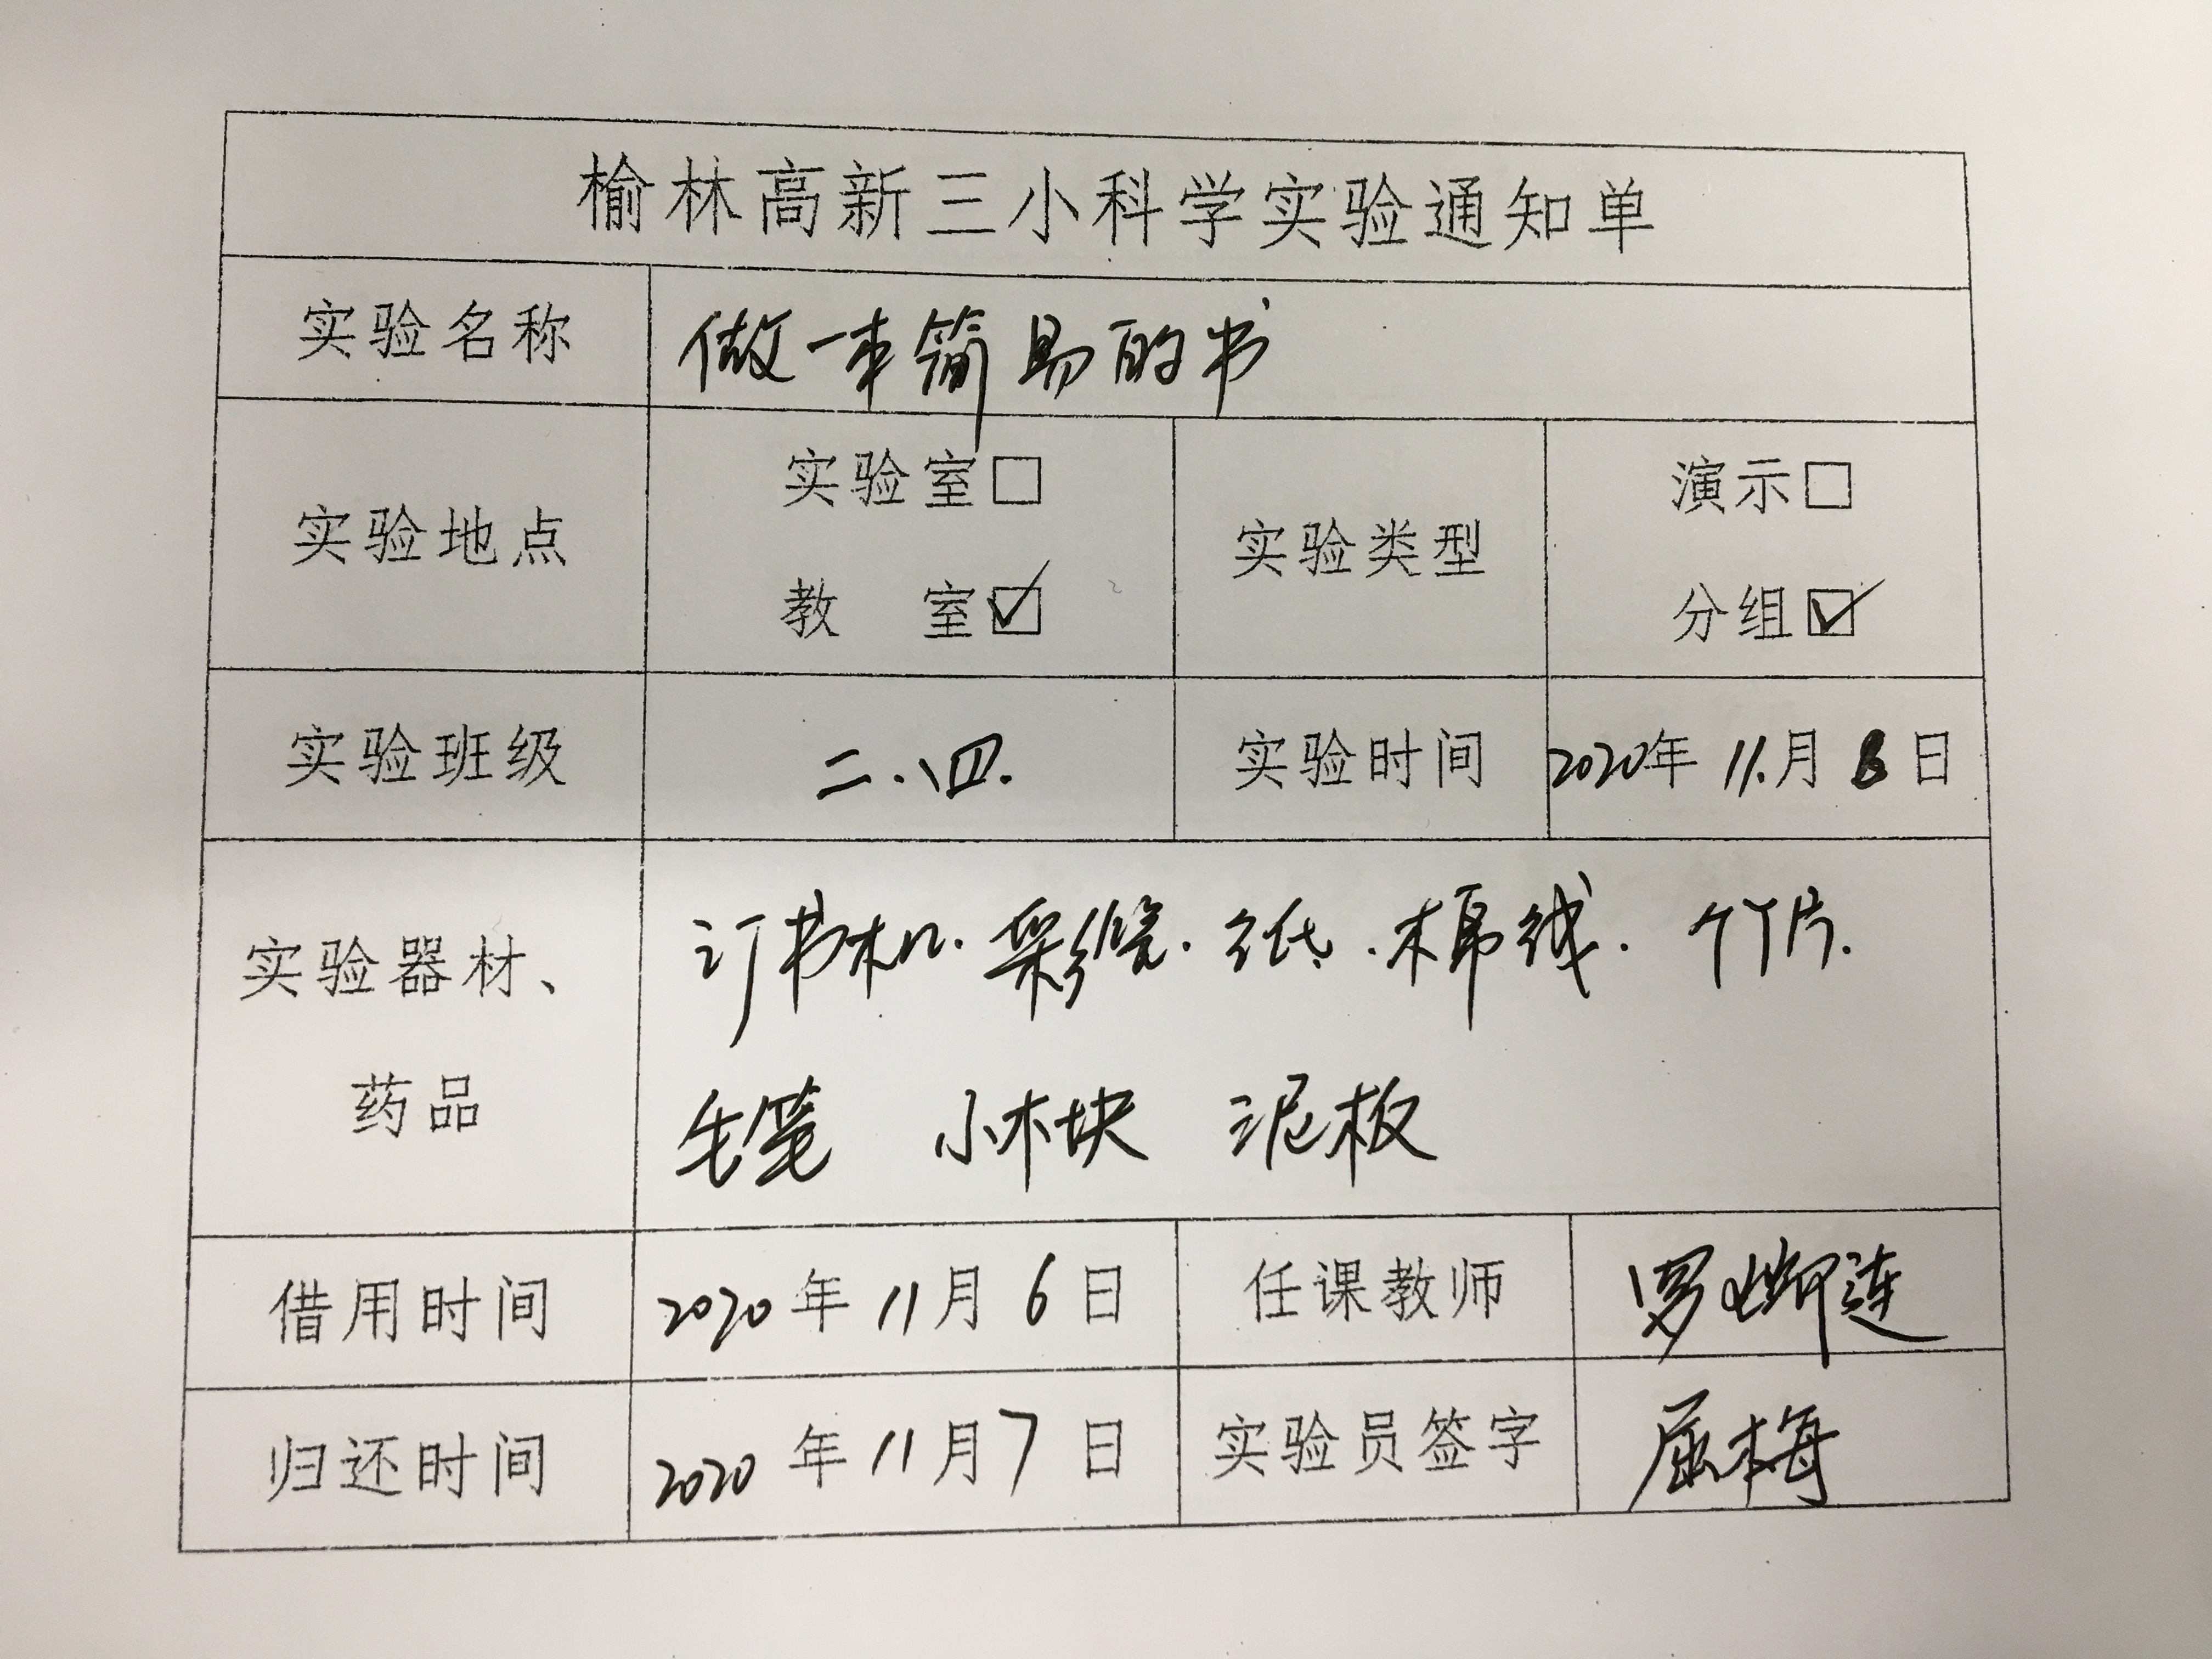 榆林高新三小科学实验通知单
实验名称 做一本简易的书
实验地点 实验室□ 教 室☑ 实验类型 演示□ 分组☑
实验班级 二.四. 实验时间 2020年11.月 日
实验器材、药品 订书机.彩纸.棉线.竹片.
毛笔 小木块 泥板
借用时间 2020年11月6日 任课教师 罗 连
归还时间 2020年11月7日 实验员签字 屈梅